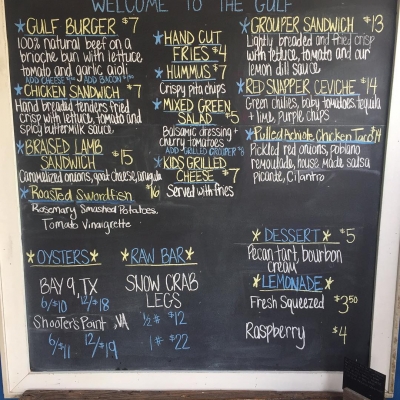 WELCOME TO THE GULF
GULF BURGER $7
100% natural beef on a
brioche bun with lettuce,
tomato and garlic aioli
ADD CHEESE ADD BACON
CHICKEN SANDWICH $7
Hand breaded tenders fried
crisp with lettuce, tomato and
spicy buttermilk sauce
BRAISED LAMB
SANDWICH $15
Caramelized onions, goat cheese, arugula
Roasted Swordfish $16
Rosemary Smashed Potatoes,
Tomato Vinaigrette
HAND CUT
FRIES $4
HUMMUS $7
Crispy pita chips
MIXED GREEN
SALAD $5
Balsamic dressing +
cherry tomatoes
ADD GRILLED GROUPER $8
KIDS GRILLED
CHEESE $7
Served with fries
GROUPER SANDWICH $13
Lightly breaded and fried crisp
with lettuce, tomato and our
lemon dill sauce
RED SNAPPER CEVICHE $14
Green chilies, baby tomatoes, tequila
+ lime, purple chips
Pulled Achiote Chicken Taco $14
Pickled red onions, poblano
remoulade, house made salsa
picante, Cilantro
OYSTERS
BAY 9, TX
6/$10 12/$18
Shooter's Point, VA
6/$11 12/$19
RAW BAR
SNOW CRAB
LEGS
½# $12
1# $22
DESSERT $5
Pecan tart, bourbon
cream
LEMONADE
Fresh Squeezed $3.50
Raspberry $4